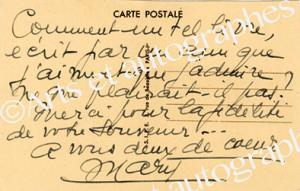 CARTE POSTALE
Comment un tel livre,
écrit par un ami que
j'aime et que j'admire,
ne me plairait-il pas?
Merci pour la fidélité
de votre souvenir...
A vous deux de coeur
Mary
Arts et autographes